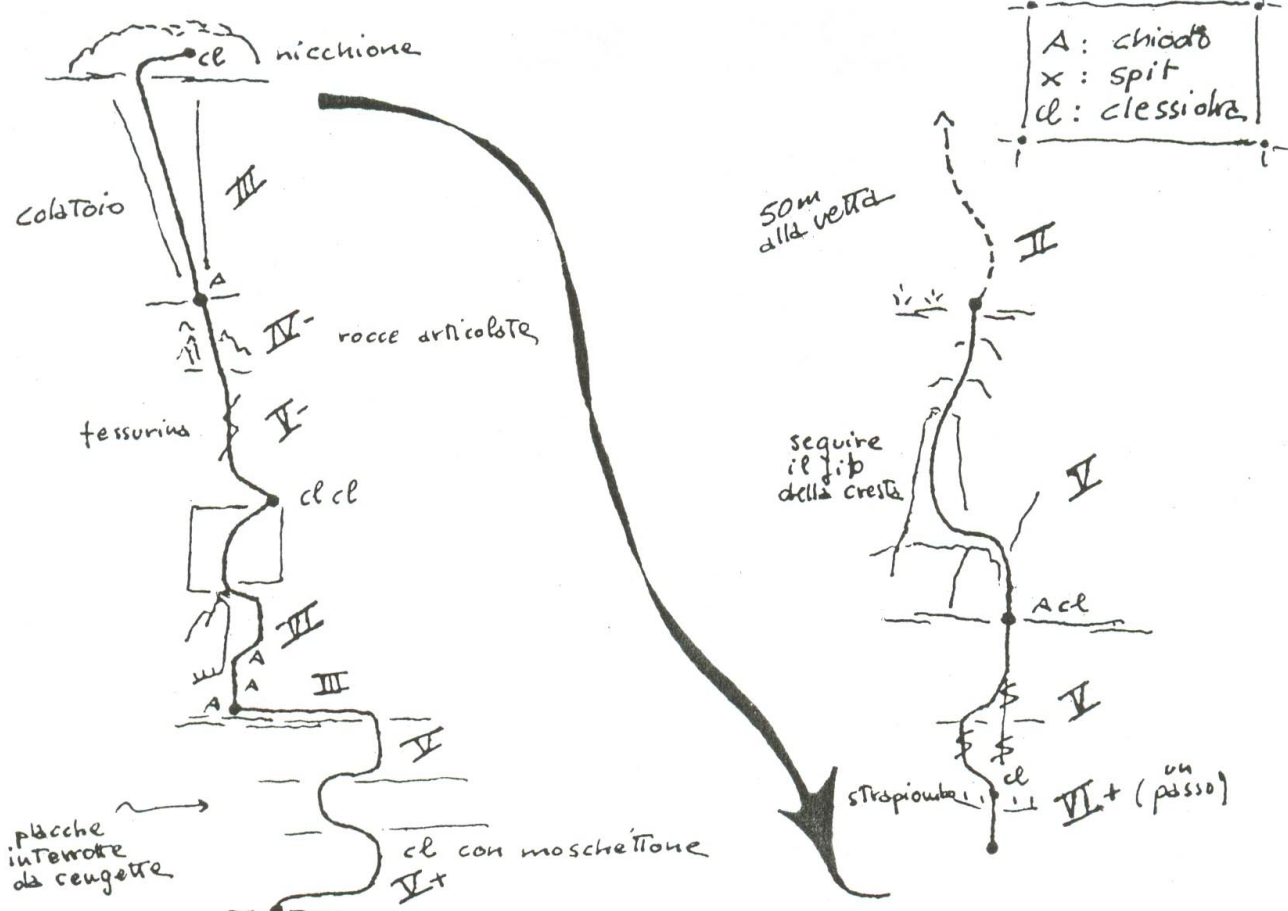 cl nicchione
colatoio
III
A
IV- rocce articolate
fessurina V-
cl cl
VI
A
A
A
III
V
placche
interrotte
da cengette
cl con moschettone
V+
A: chiodo
x: spit
cl: clessidra
50m
alla vetta
II
seguire
il filo
della cresta
V
A cl
V
cl
strapiombo
VI+ (un
passo)